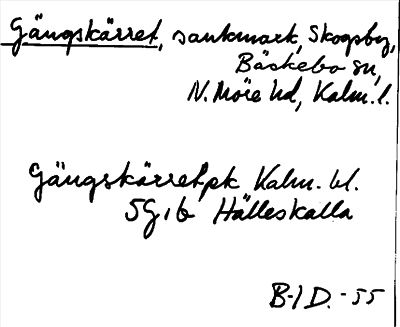 Gängskärret, sankmark, Skogsby,
Bäckebo sn,
N. Möre hd, Kalm. l.
Gängskärret pk Kalm. bl.
5G, b Hälleskalla
B-I D. - 55